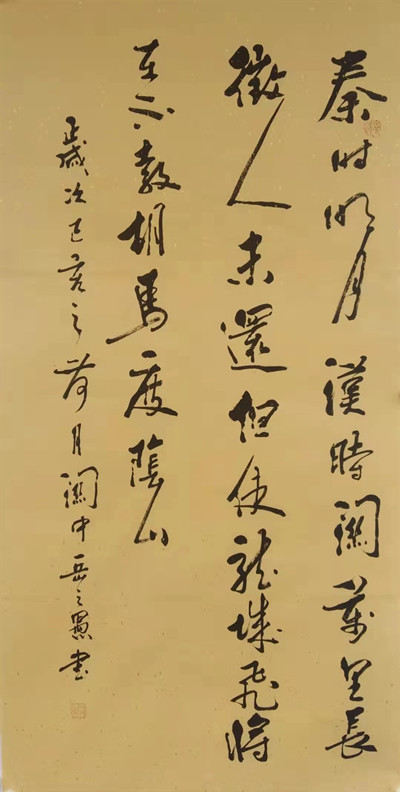 秦时明月漢時關萬里長
徵人未還但使龍城飛將
在不教胡馬度陰山
歲次己亥之荷月關中岳之書